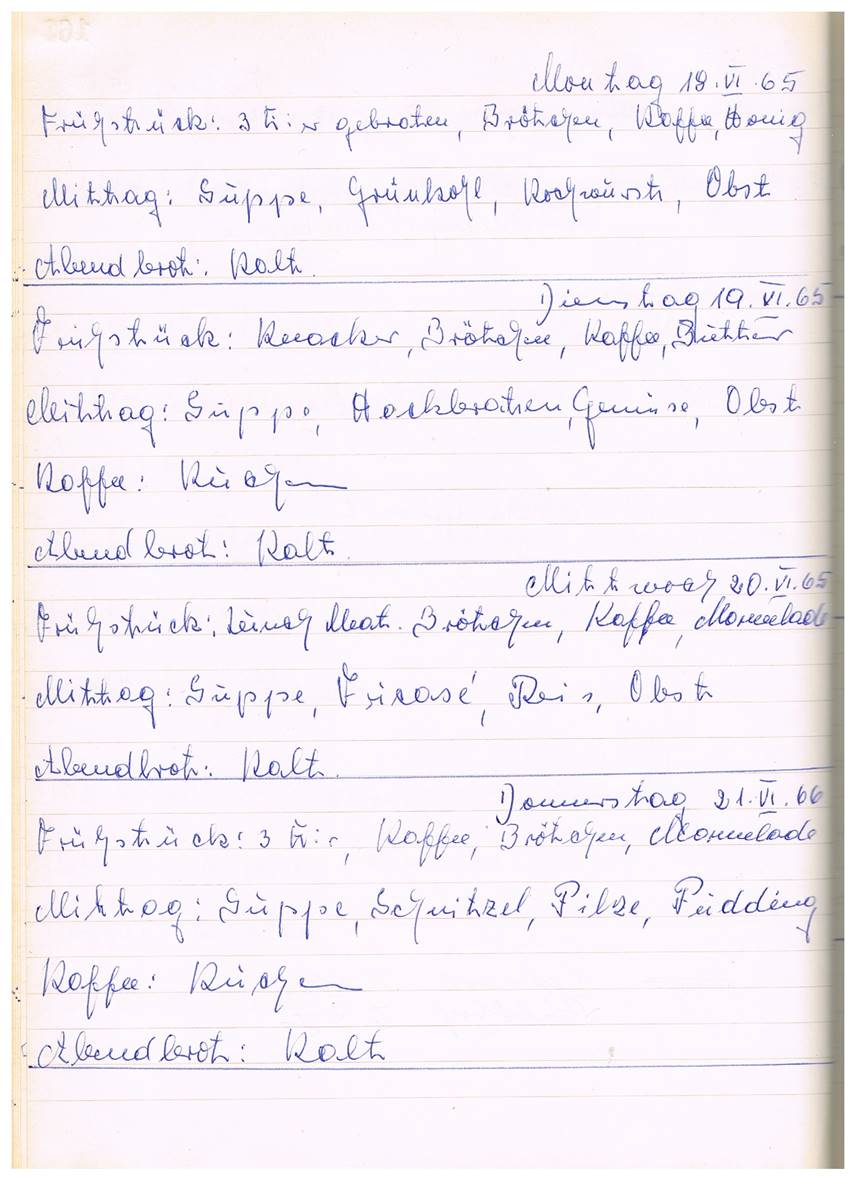 Montag 18.VI.65
Frühstück: 3 Eier gebraten, Brötchen, Kaffee, Honig
Mittag: Suppe, Grünkohl, Kochwurst, Obst
Abendbrot: Kalt.
Dienstag 19.VI.65
Frühstück: Knacker, Brötchen, Kaffee, Butter
Mittag: Suppe, Hackbraten, Gemüse, Obst
Kaffee: Kuchen
Abendbrot: Kalt.
Mittwoch 20.VI.65
Frühstück: Brötchen, Kaffee, Marmelade
Mittag: Suppe, Fricasé, Reis, Obst
Abendbrot: Kalt.
Donnerstag 21.VI.66
Frühstück: 3 Eier, Kaffee, Brötchen, Marmelade
Mittag: Suppe, Schnitzel, Pilze, Pudding
Kaffee: Kuchen
Abendbrot: Kalt